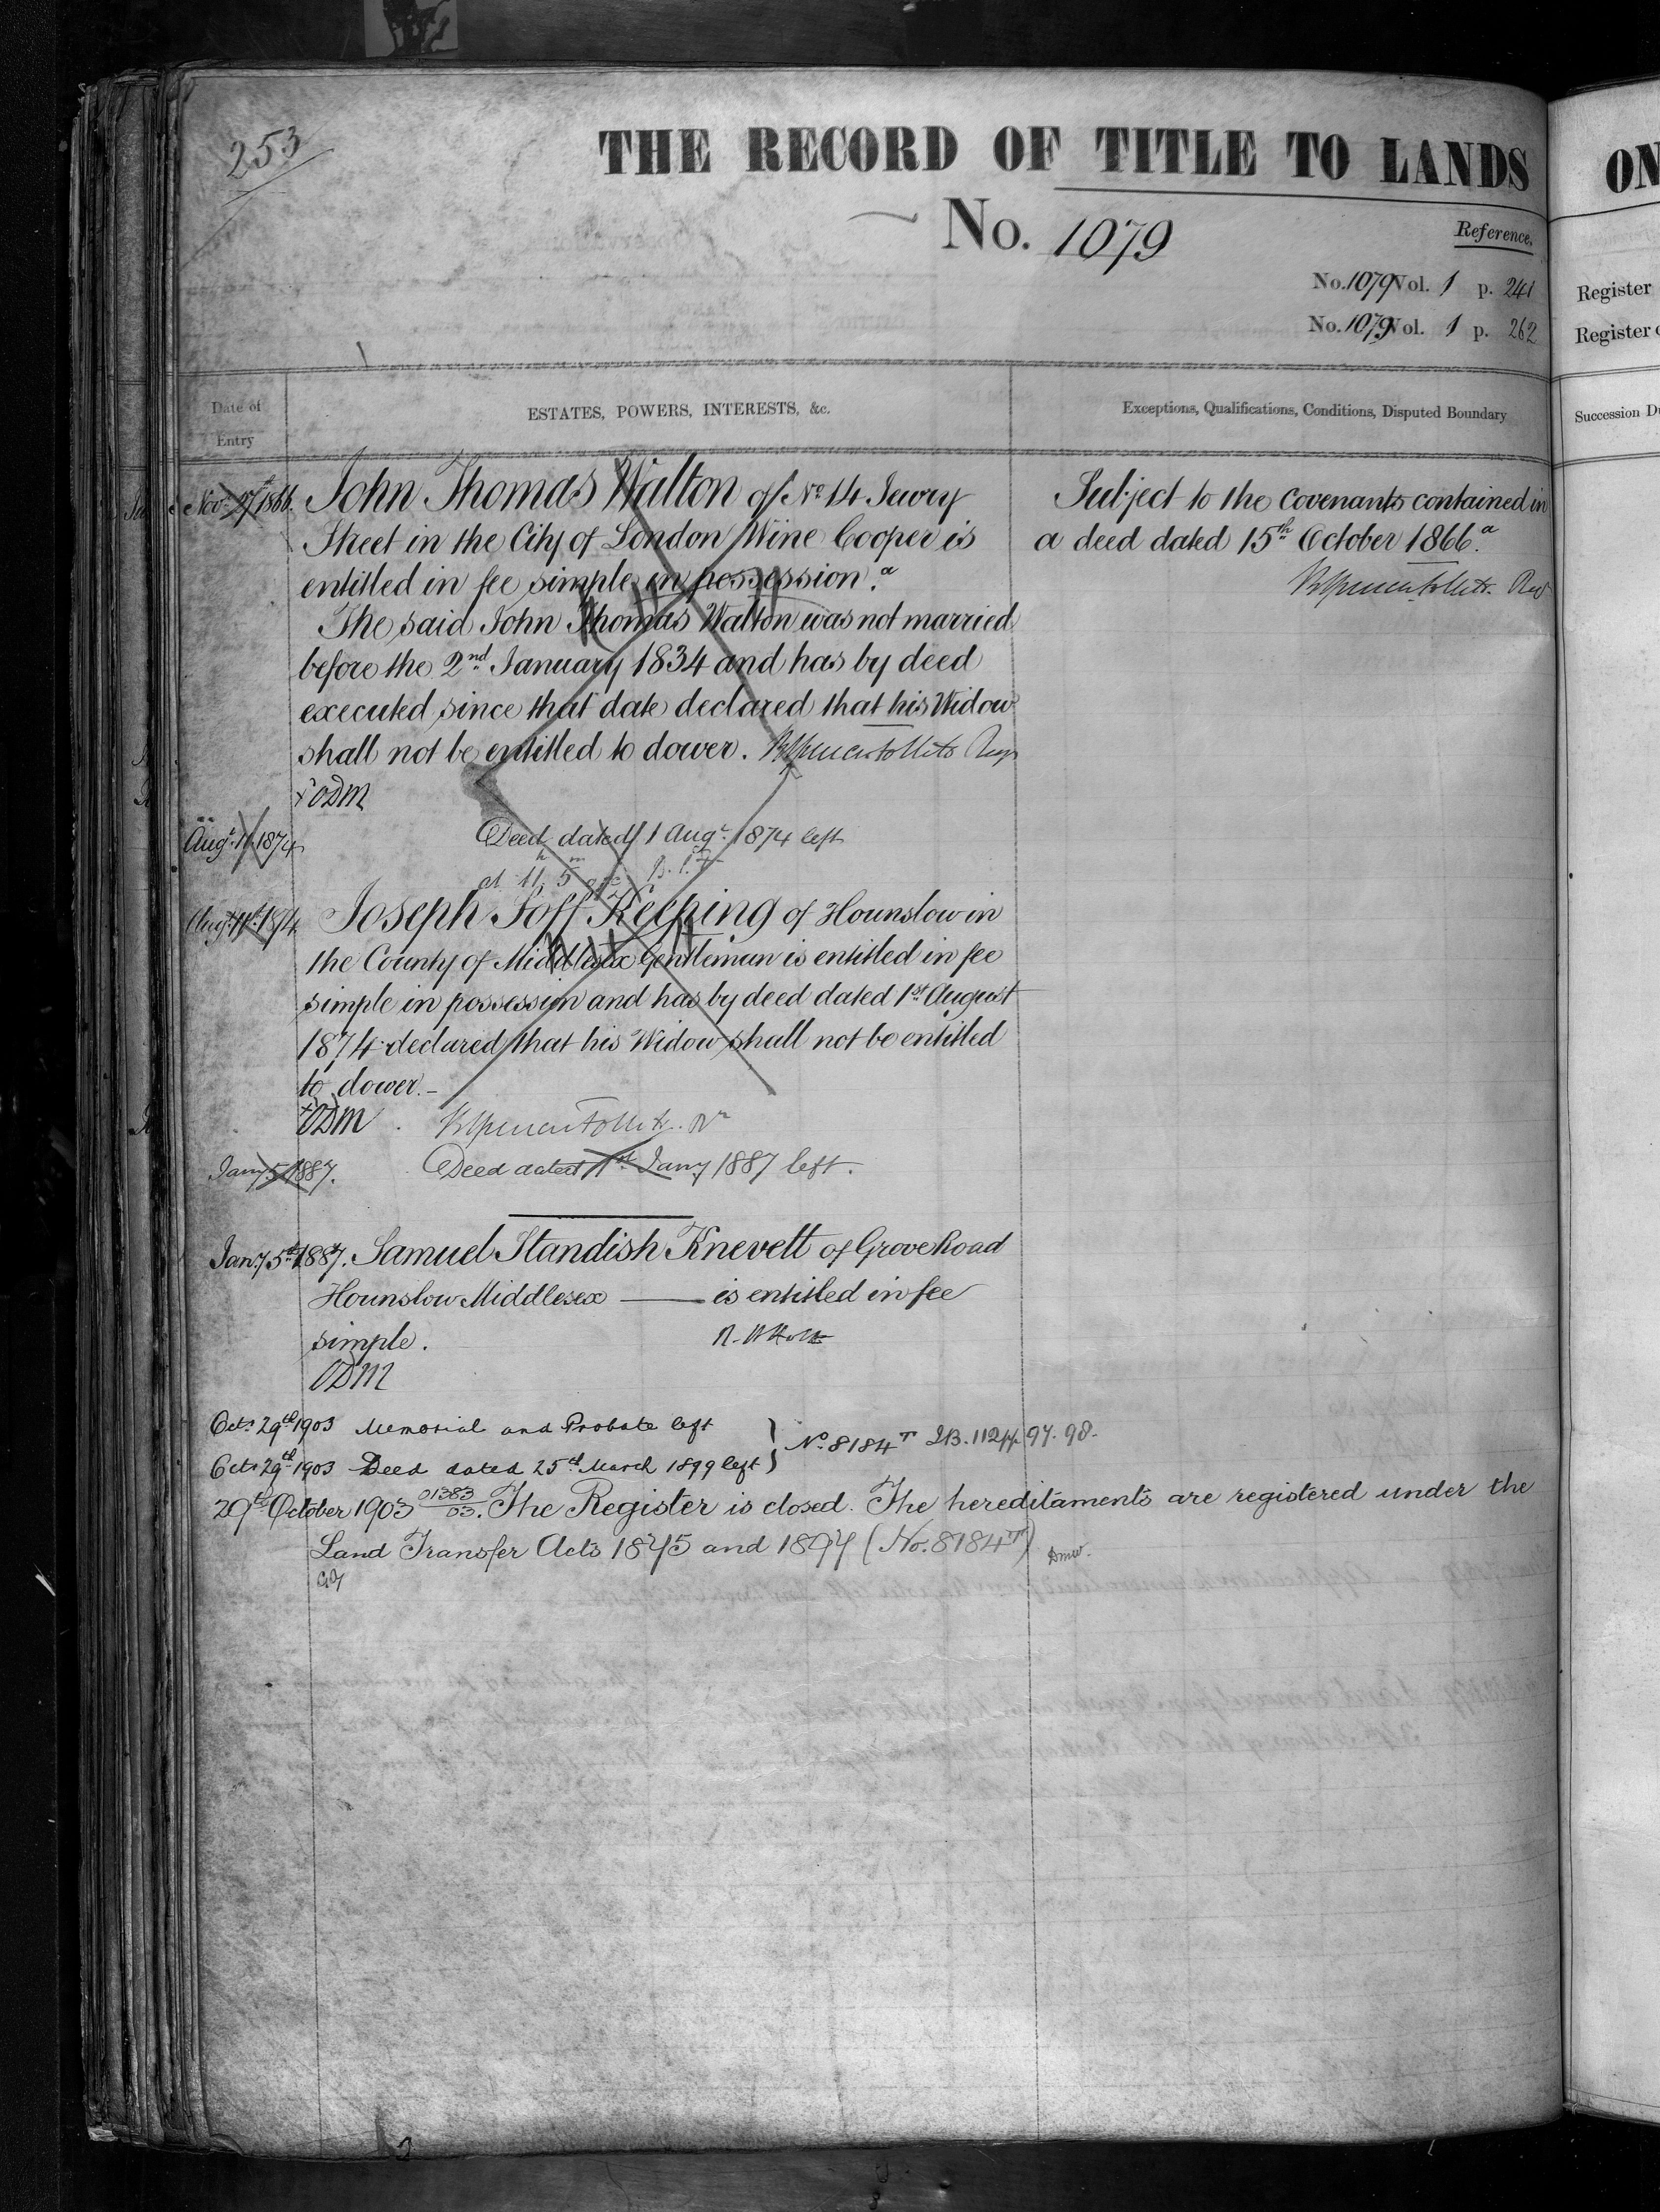 253
THE RECORD OF TITLE TO LANDS
No. 1079
Reference.
No. 1079 Vol. 1 p. 241
No. 1079 Vol. 1 p. 262
Date of Entry
ESTATES, POWERS, INTERESTS, &c.
Exceptions, Qualifications, Conditions, Disputed Boundary
Nov. 1866. John Thomas Walton of No 14 Jewry
Street in the City of London Wine Cooper is
entitled in fee simple in possession.a
The said John Thomas Walton was not married
before the 2nd January 1834 and has by deed
executed since that date declared that his Widow
shall not be entitled to dower.
ODM
Subject to the covenants contained in
a deed dated 15th October 1866.a
Augt. 11 1874 Deed dated 1 Augt. 1874 left
at 11h 5m
Augt. 11th 1874. Joseph Goff Keeping of Hounslow in
the County of Middlesex Gentleman is entitled in fee
simple in possession and has by deed dated 1st August
1874 declared that his Widow shall not be entitled
to dower.-
ODM
Jany 5 1887. Deed dated 1st Jany 1887 left.
Jany 5th 1887. Samuel Standish Knevett of Grove Road
Hounslow Middlesex — is entitled in fee
simple. R. W. Holt
ODM
Octr. 29th 1903 Memorial and Probate left
Octr. 29th 1903 Deed dated 25th March 1899 left } No. 8184T IB. 112 pp 97. 98.
29th October 1903 01383/03. The Register is closed. The hereditaments are registered under the
Land Transfer Acts 1875 and 1897 (No. 8184T) Dmw.
ON
Register
Register
Succession Du